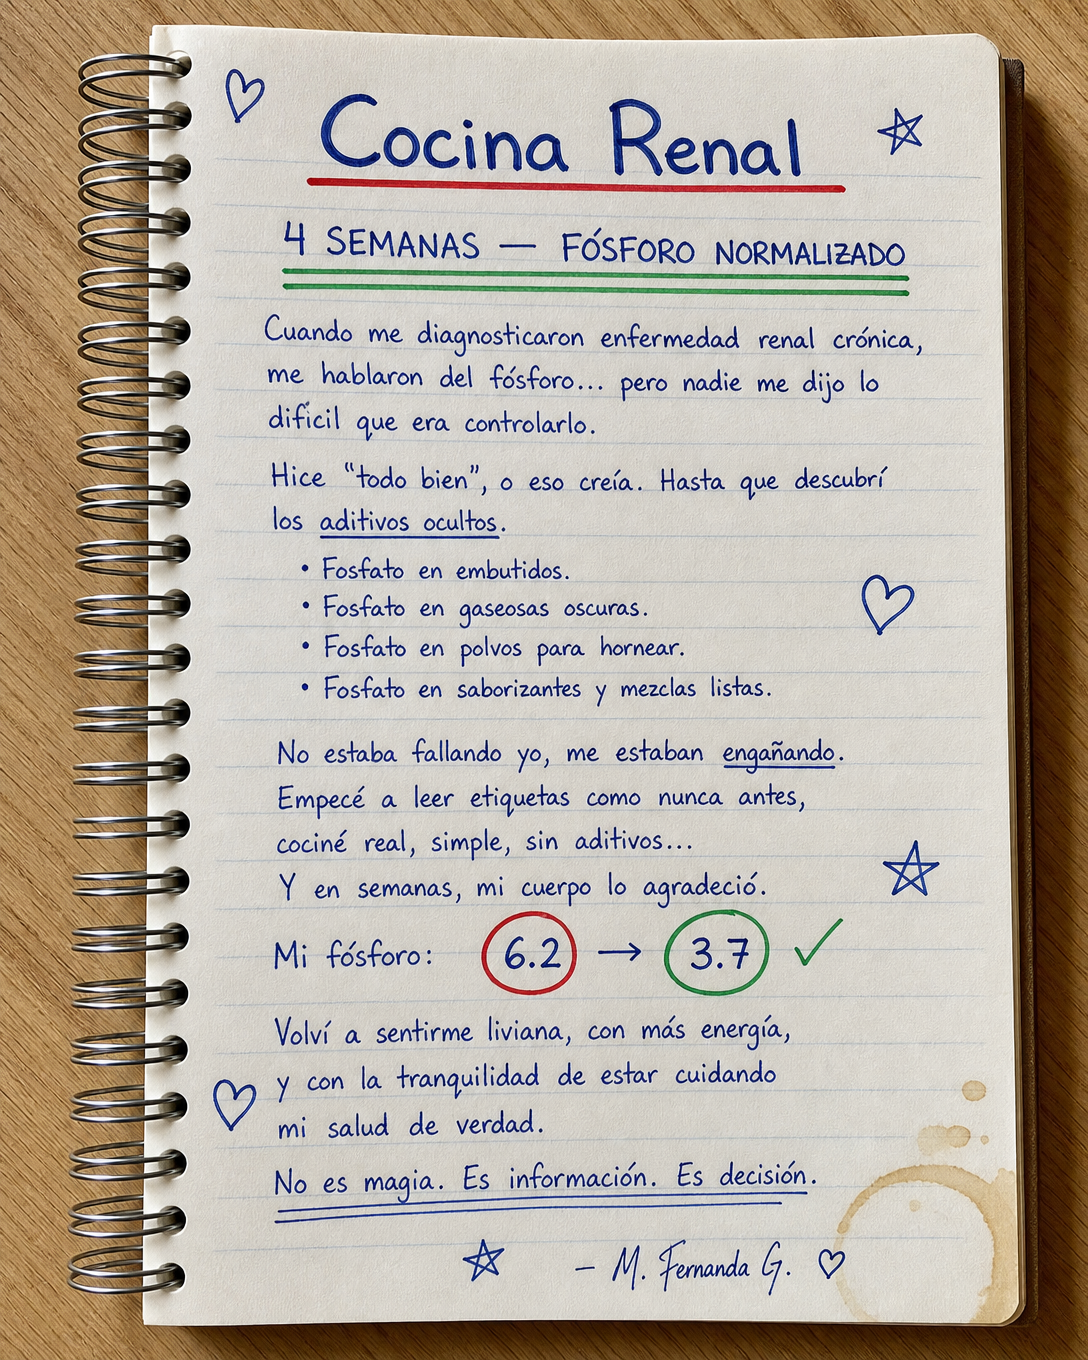 Cocina Renal
4 SEMANAS — FÓSFORO NORMALIZADO
Cuando me diagnosticaron enfermedad renal crónica,
me hablaron del fósforo... pero nadie me dijo lo
difícil que era controlarlo.
Hice "todo bien", o eso creía. Hasta que descubrí
los aditivos ocultos.
• Fosfato en embutidos.
• Fosfato en gaseosas oscuras.
• Fosfato en polvos para hornear.
• Fosfato en saborizantes y mezclas listas.
No estaba fallando yo, me estaban engañando.
Empecé a leer etiquetas como nunca antes,
cociné real, simple, sin aditivos...
Y en semanas, mi cuerpo lo agradeció.
Mi fósforo: 6.2 → 3.7 ✓
Volví a sentirme liviana, con más energía,
y con la tranquilidad de estar cuidando
mi salud de verdad.
No es magia. Es información. Es decisión.
— M. Fernanda G.